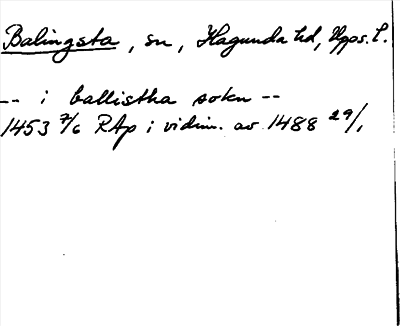 Balingsta, sn, Hagunda hd, Upps. l.
-- i ballistha sokn --
1453 7/6 RAp i vidim. av 1488 29/1